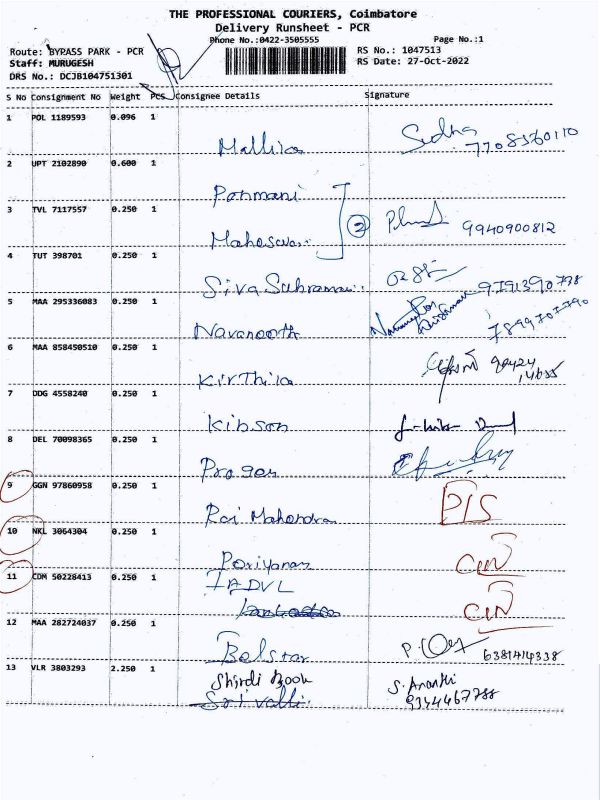 THE PROFESSIONAL COURIERS, Coimbatore
Delivery Runsheet - PCR
Phone No:0422-3505555 Page No.:1
Route: BYPASS PARK - PCR RS No.: 1047513
Staff: MURUGESH RS Date: 27-Oct-2022
DRS No.: DCJB104751301
S No Consignment No Weight PCS Consignee Details Signature
1 POL 1189593 0.096 1 Mallika Sudha
7708560110
2 UPT 2102890 0.600 1 Ponmani
3 TVL 7117557 0.250 1 Maheswari 2 9940900812
4 TUT 398701 0.250 1 Siva Subramani 9791390778
5 MAA 295336083 0.250 1 Navaneeth 7899707790
6 MAA 858450510 0.250 1 Kirthika 90424
14655
7 DDG 4558240 0.250 1 Kibson
8 DEL 70098365 0.250 1 Progen
9 GGN 97860958 0.250 1 Raj Mahendran P/S
10 NKL 3064304 0.250 1 Poriyanan C/N
11 CDM 50228413 0.250 1 IADVL C/N
12 MAA 282724037 0.250 1 Belstar 6381414338
13 VLR 3803293 2.250 1 Shirdi Book S. Ananthi
Srivalli 9344467788